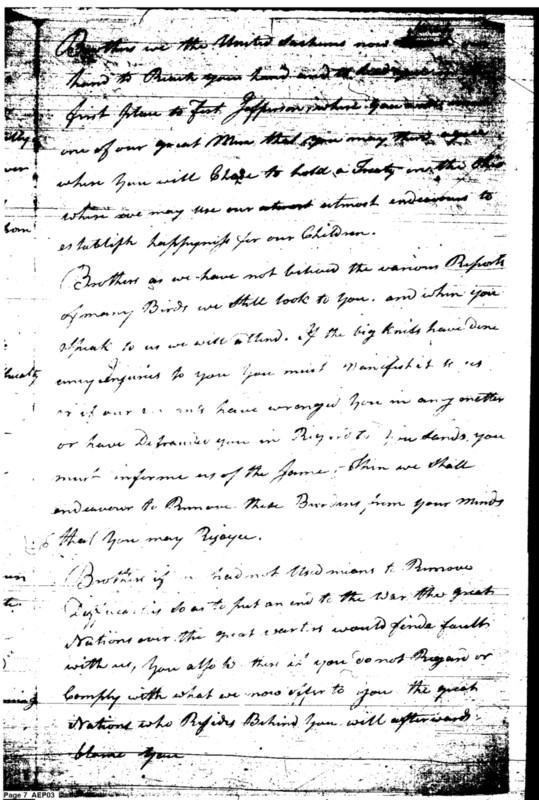 Brothers we the United Sachems now our
hand to Reach your hand and
first place to Fort Jefferson, where you
one of our great Men that you may there agree
where you will Chose to hold a Treaty on the Ohio
where we may use our utmost endeavours to
establish happyness for our Children.
Brothers as we have not believed the various Reports
of many Birds we Still look to You. and when you
Speak to us we will attend. If the big knifs have done
any Injuries to you You must Manifest it to us
or if our have wronged You in any matter
or have Defrauded you in Regard to your Lands, you
must informe us of the Same, Then we Shall
endeavour to Remove these Burdens from your Minds
that you may Rejoyce.
Brothers if we had not Used means to Remove
Difficulties So as to put an end to the War the great
Nations over the great waters would finde fault
with us, You also if you do not Regard or
Comply with what we now offer to you the great
Nations who Resides Behind You will afterwards
blame You
Page 7 AEP03